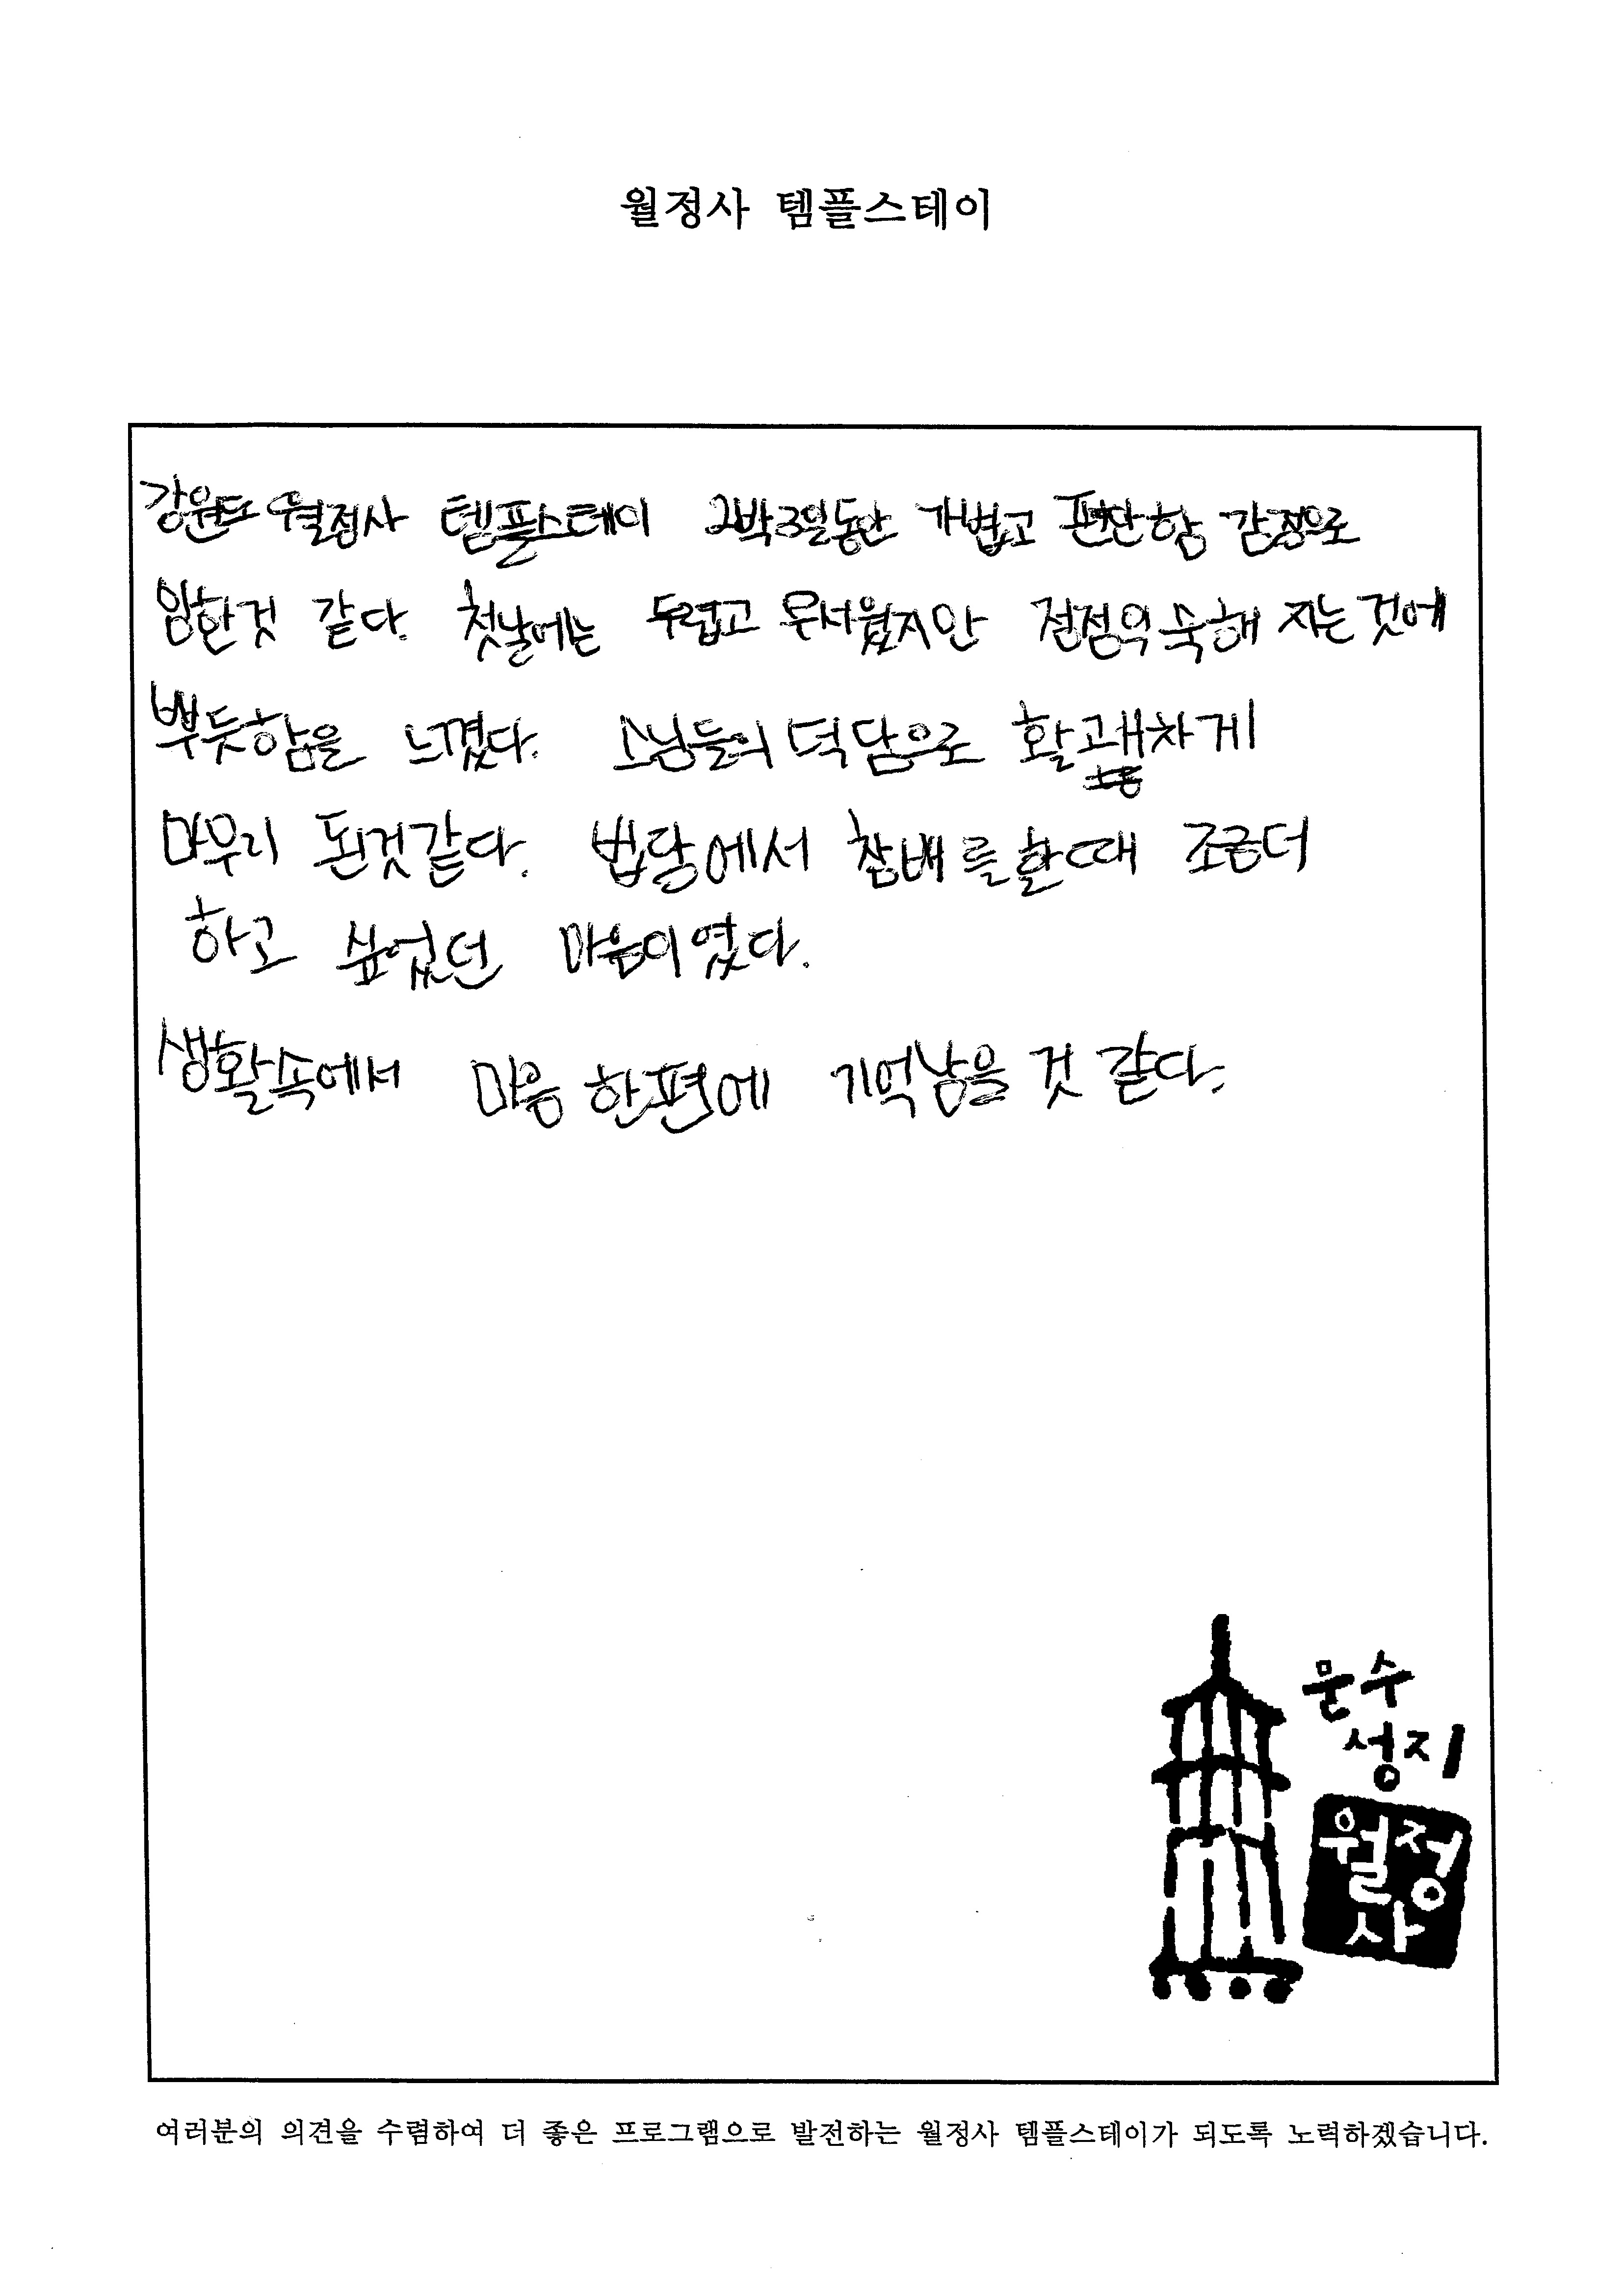 월정사 템플스테이
강원도 월정사 템플스테이 2박3일동안 가볍고 편안함 감정으로
임한것 같다. 첫날에는 두렵고 무서웠지만 점점익숙해 지는것에
뿌듯함을 느꼈다. 스님들의 덕담으로 활괘하게
마무리 된것같다. 법당에서 참배를할때 조금더
하고 싶었던 마음이였다.
생활속에서 마음 한편에 기억남을 것 같다.
문수
성지
월정
사
여러분의 의견을 수렴하여 더 좋은 프로그램으로 발전하는 월정사 템플스테이가 되도록 노력하겠습니다.